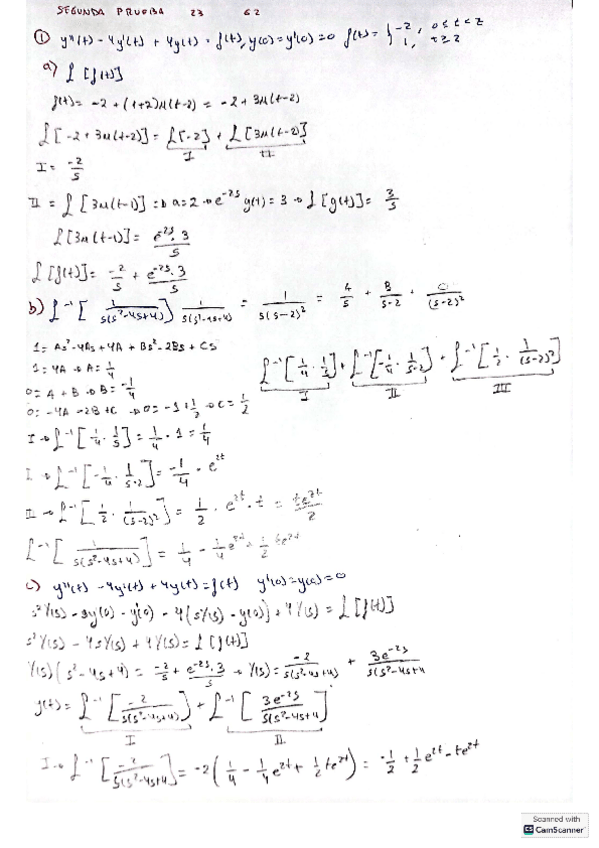 SEGUNDA PRUEBA 23 G2
① y''(t) - 4y'(t) + 4y(t) = f(t), y(0) = y'(0) = 0 f(t) = { -2, 0≤t<2
1, t≥2
a) L[f(t)]
f(t) = -2 + (1+2)u(t-2) = -2 + 3u(t-2)
L[-2 + 3u(t-2)] = L[-2] + L[3u(t-2)]
I II
I = -2/s
II = L[3u(t-1)] = D a=2 → e^-2s g(t) = 3 → L[g(t)] = 3/s
L[3u(t-1)] = e^-2s·3/s
L[f(t)] = -2/s + e^-2s·3/s
b) L^-1[1/s(s²-4s+4)] 1/s(s²-4s+4) = 1/s(s-2)² = A/s + B/s-2 + C/(s-2)²
1 = As² - 4As + 4A + Bs² - 2Bs + Cs
1 = 4A → A = 1/4
0 = A + B → B = -1/4
0 = -4A - 2B + C → 0 = -1 + 1/2 → C = 1/2
L^-1[1/4 · 1/s] + L^-1[-1/4 · 1/s-2] + L^-1[1/2 · 1/(s-2)²]
I II III
I → L^-1[1/4 · 1/s] = 1/4 · 1 = 1/4
I → L^-1[-1/4 · 1/s-2] = -1/4 · e^2t
II → L^-1[1/2 · 1/(s-2)²] = 1/2 · e^2t · t = te^2t/2
L^-1[1/s(s²-4s+4)] = 1/4 - 1/4 e^2t + 1/2 te^2t
c) y''(t) - 4y'(t) + 4y(t) = f(t) y'(0) = y(0) = 0
s²Y(s) - sy(0) - y'(0) - 4(sY(s) - y(0)) + 4Y(s) = L[f(t)]
s²Y(s) - 4sY(s) + 4Y(s) = L[f(t)]
Y(s)(s² - 4s + 4) = -2/s + e^-2s·3/s → Y(s) = -2/s(s²-4s+4) + 3e^-2s/s(s²-4s+4
y(t) = L^-1[-2/s(s²-4s+4)] + L^-1[3e^-2s/s(s²-4s+4]
I II
I → L^-1[-2/s(s²-4s+4)] = -2(1/4 - 1/4 e^2t + 1/2 te^2t) = -1/2 + 1/2 e^2t - te^2t
Scanned with
CS CamScanner